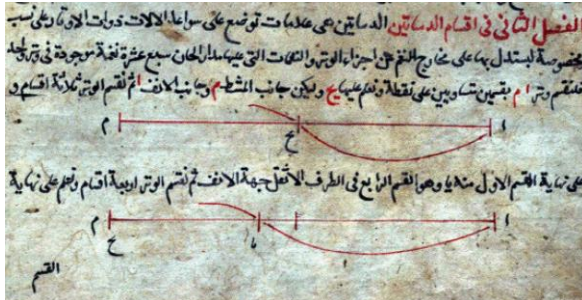 الفصل الثاني في اقسام الدساتين الدساتين هي علامات توضع على سواعد الالات ذوات الاوتار على نسب
مخصوصة ليستدل بها على مخارج النغم من اجزاء الوتر والنغمات التي عليها مدار الحان سبع عشرة نغمة موجودة في وتر واحد
فلنقسم وتر ا م بقسمين متساويين على نقطة ونعلم عليها يح وليكن جانب المشط م وجانب الانف ا ثم نقسم الوتر ثلاثة اقسام و
ا م
يح
على نهاية القسم الاول منه يا وهو القسم الرابع في الطرف الاثقل جهة الانف ثم نقسم الوتر اربعة اقسام ونعلم على نهاية
ا يا م
ح
القسم